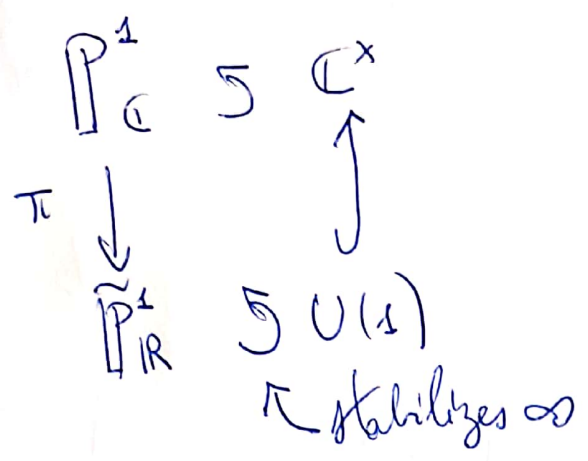 ℙ¹_ℂ ↺ ℂ^×
π
ℙ̃¹_ℝ ↺ U(1)
stabilizes ∞